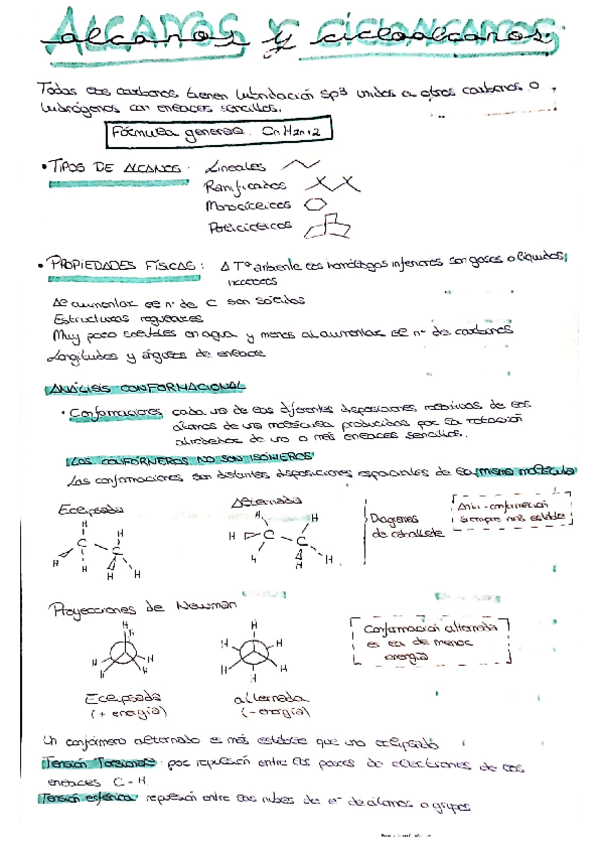 ALCANOS Y CICLOALCANOS
alcanos y cicloalcanos
Todos los carbonos tienen hibridación sp3 unidos a otros carbonos o
hidrógenos con enlaces sencillos.
Fórmula general. CnH2n+2
• TIPOS DE ALCANOS: Lineales
Ramificados
Monocíclicos
Policíclicos
• PROPIEDADES FÍSICAS: A Tº ambiente los homólogos inferiores son gases o líquidos,
incoloros
Al aumentar el nº de C son sólidos
Estructuras regulares
Muy poco solubles en agua y menos al aumentar el nº de carbonos
Longitudes y ángulos de enlace
ANÁLISIS CONFORMACIONAL
• Conformaciones cada uno de las diferentes disposiciones rotativas de los
átomos de una molécula producidas por la rotación
alrededor de uno o más enlaces sencillos.
LOS CONFÓRMEROS NO SON ISÓMEROS
Las conformaciones son distintas disposiciones espaciales de la misma molécula
Eclipsada
Alternada
H H C C H H H H
H H H C C H H H
Diagramas
de caballete
Anti-conformación
siempre más estable
Proyecciones de Newman
H H H H H H
H H H H H H
Eclipsada
(+ energía)
alternada
(- energía)
Conformación alternada
es la de menor
energía
Un confórmero alternado es más estable que uno eclipsado
Tensión Torsional: por repulsión entre los pares de electrones de los
enlaces C-H
Tensión estérica: repulsión entre las nubes de e- de átomos o grupos